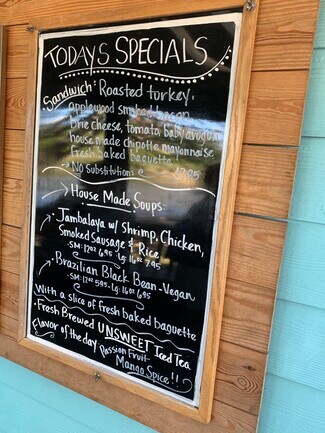 TODAYS SPECIALS
Sandwich: Roasted turkey,
applewood smoked bacon
Brie Cheese, tomato, baby arugula
house made chipotle mayonnaise
Fresh baked baguette!
→ NO Substitutions
→ House Made Soups:
Jambalaya w/ shrimp, Chicken,
Smoked Sausage & Rice
SM: 12oz 6.95 Lg: 16oz 7.95
Brazilian Black Bean - Vegan
SM: 12oz 5.95 Lg: 16oz 6.95
With a slice of fresh baked baguette
• Fresh Brewed UNSWEET Iced Tea
Flavor of the day Passion Fruit-
Mango Spice!!